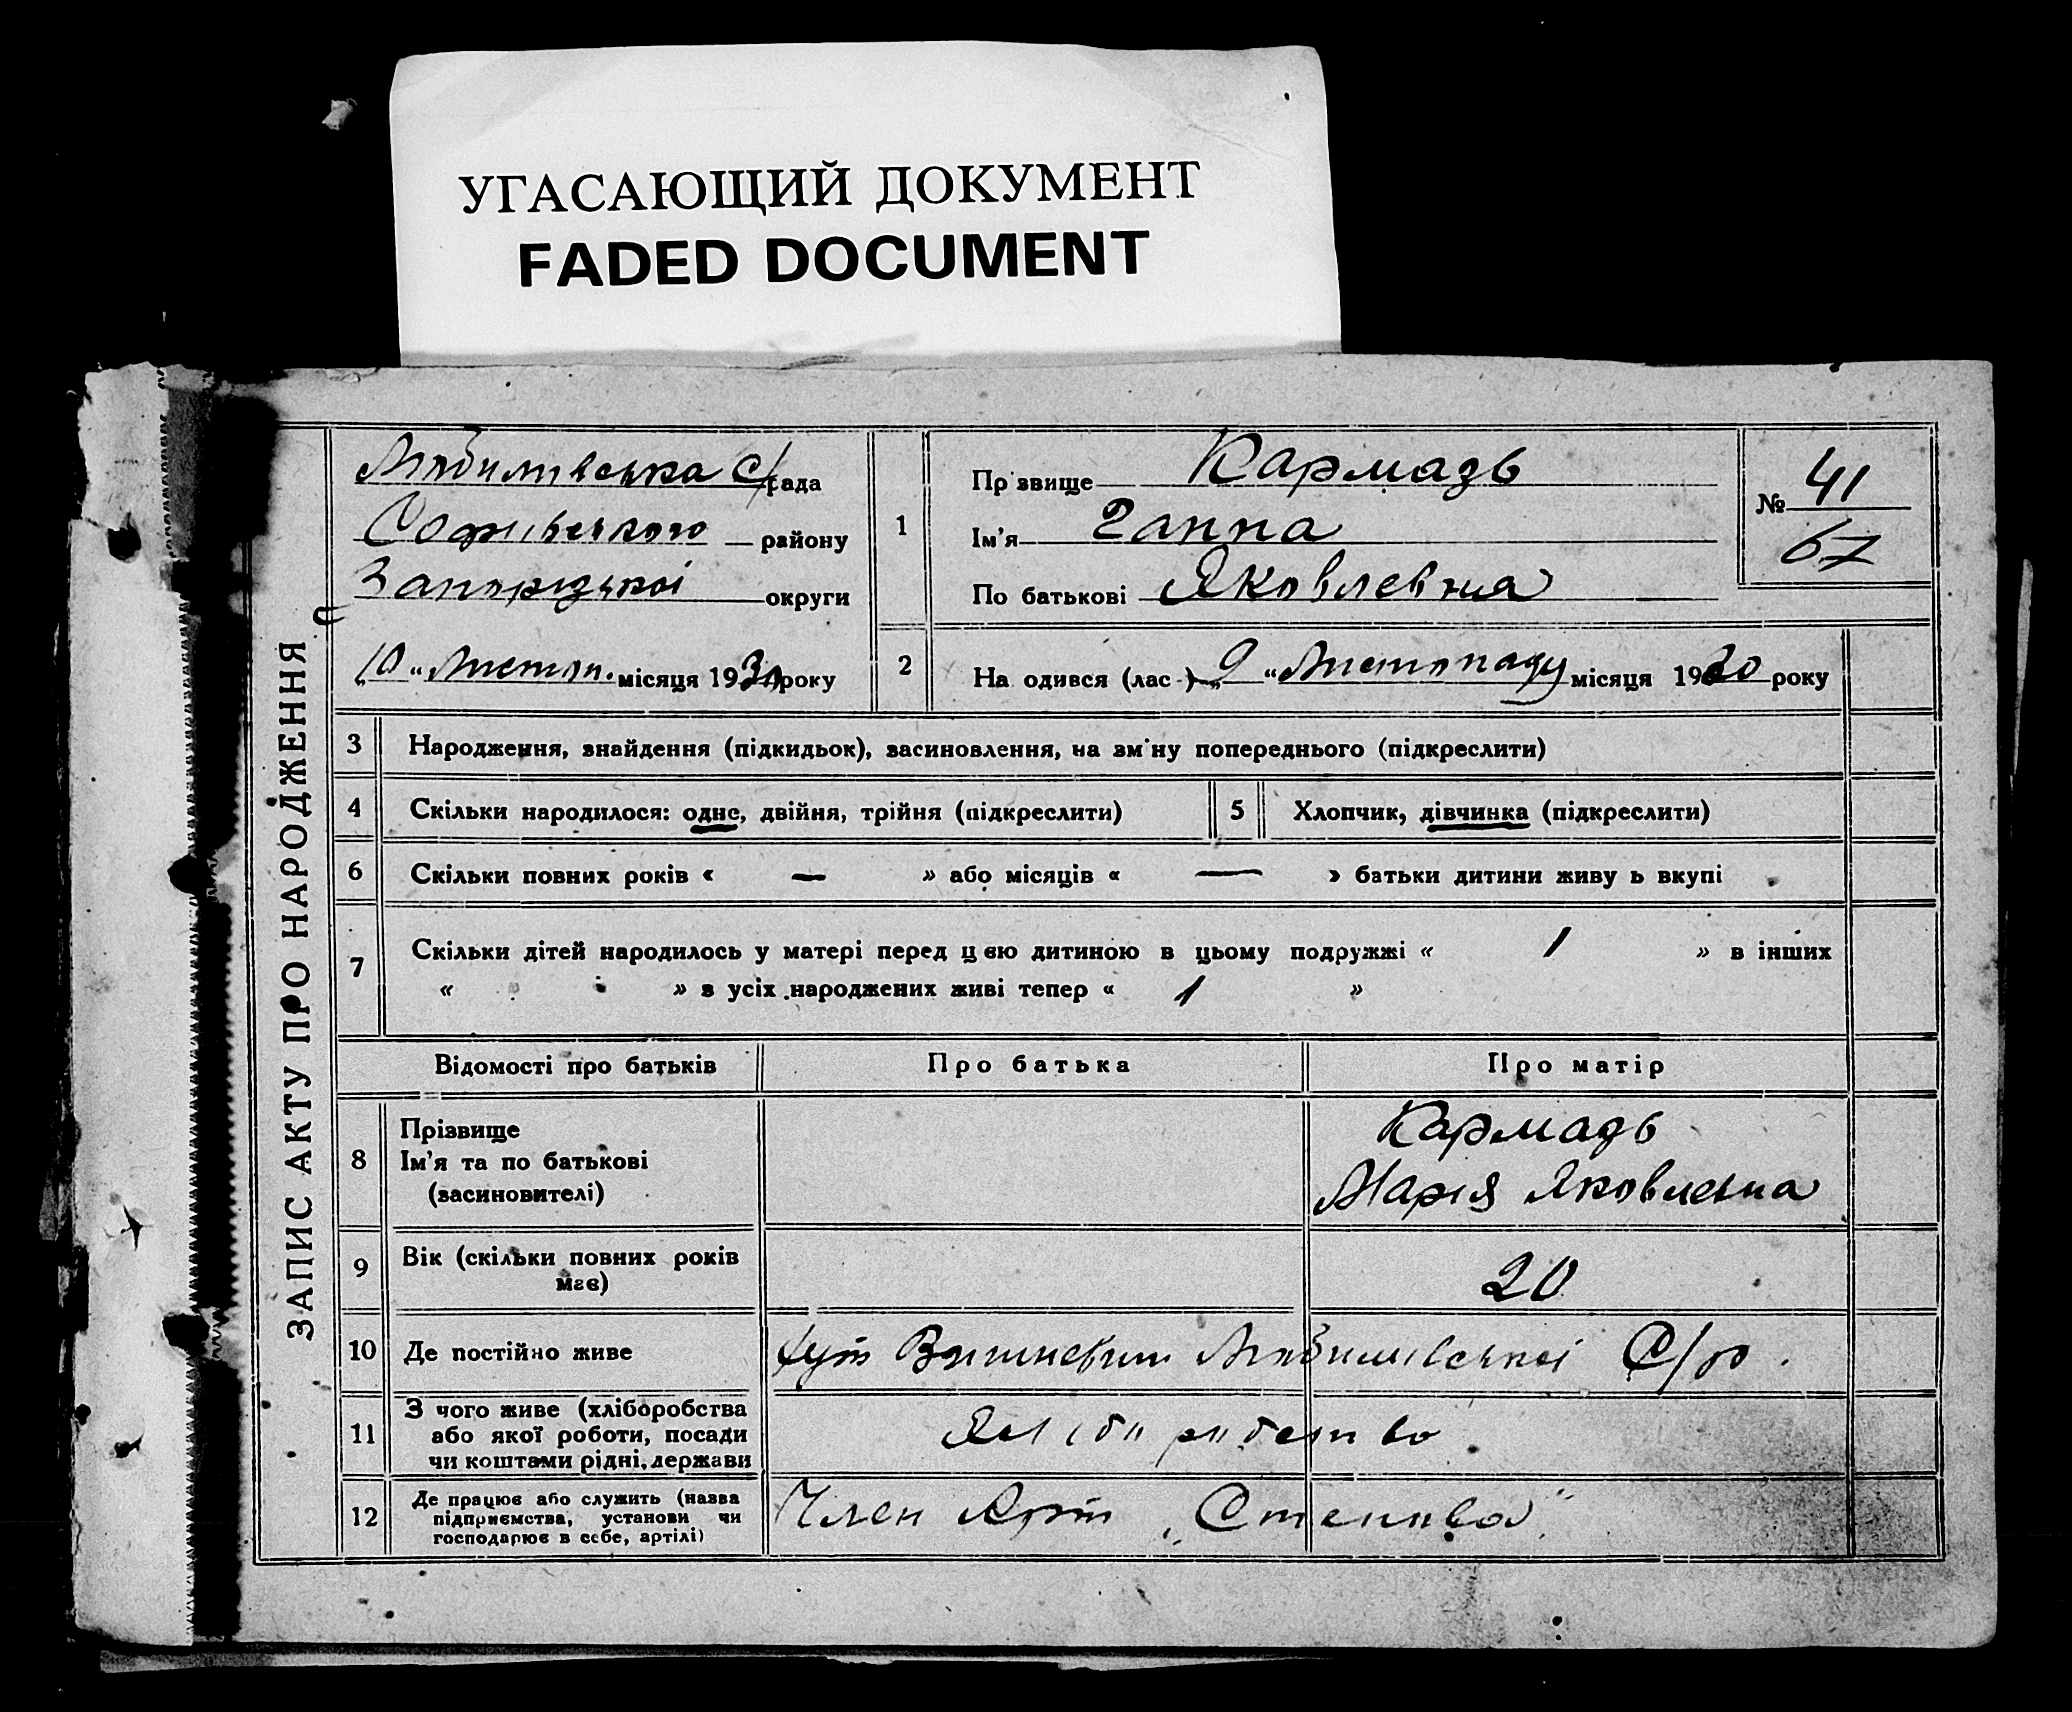 УГАСАЮЩИЙ ДОКУМЕНТ
FADED DOCUMENT
ЗАПИС АКТУ ПРО НАРОДЖЕННЯ
Любимівська С/рада
Софіївського району
Запорізької округи
„10 “ Листоп. місяця 1930 року
1
Пр звище Кармазь
Ім'я Ганна
По батькові Яковлевна
№ 41
67
2
На одився (лас ) „9 “ Листопаду місяця 1930 року
3 Народження, знайдення (підкидьок), засиновлення, на зм ну попереднього (підкреслити)
4 Скільки народилося: одне, двійня, трійня (підкреслити) 5 Хлопчик, дівчинка (підкреслити)
6 Скільки повних років « — » або місяців « — » батьки дитини живу ь вкупі
7 Скільки дітей народилось у матері перед ц єю дитиною в цьому подружжі « 1 » в інших
« » з усіх народжених живі тепер « 1 »
Відомості про батьків Про батька Про матір
8 Прізвище
Ім'я та по батькові
(засиновителі)
Кармазь
Марія Яковлевна
9 Вік (скільки повних років
має)
20
10 Де постійно живе хут Любимівської С/р.
11 З чого живе (хліборобства
або якої роботи, посади
чи коштами рідні, держави
12 Де працює або служить (назва
підприємства, установи чи
господарює в себе, артілі)
Член Арт